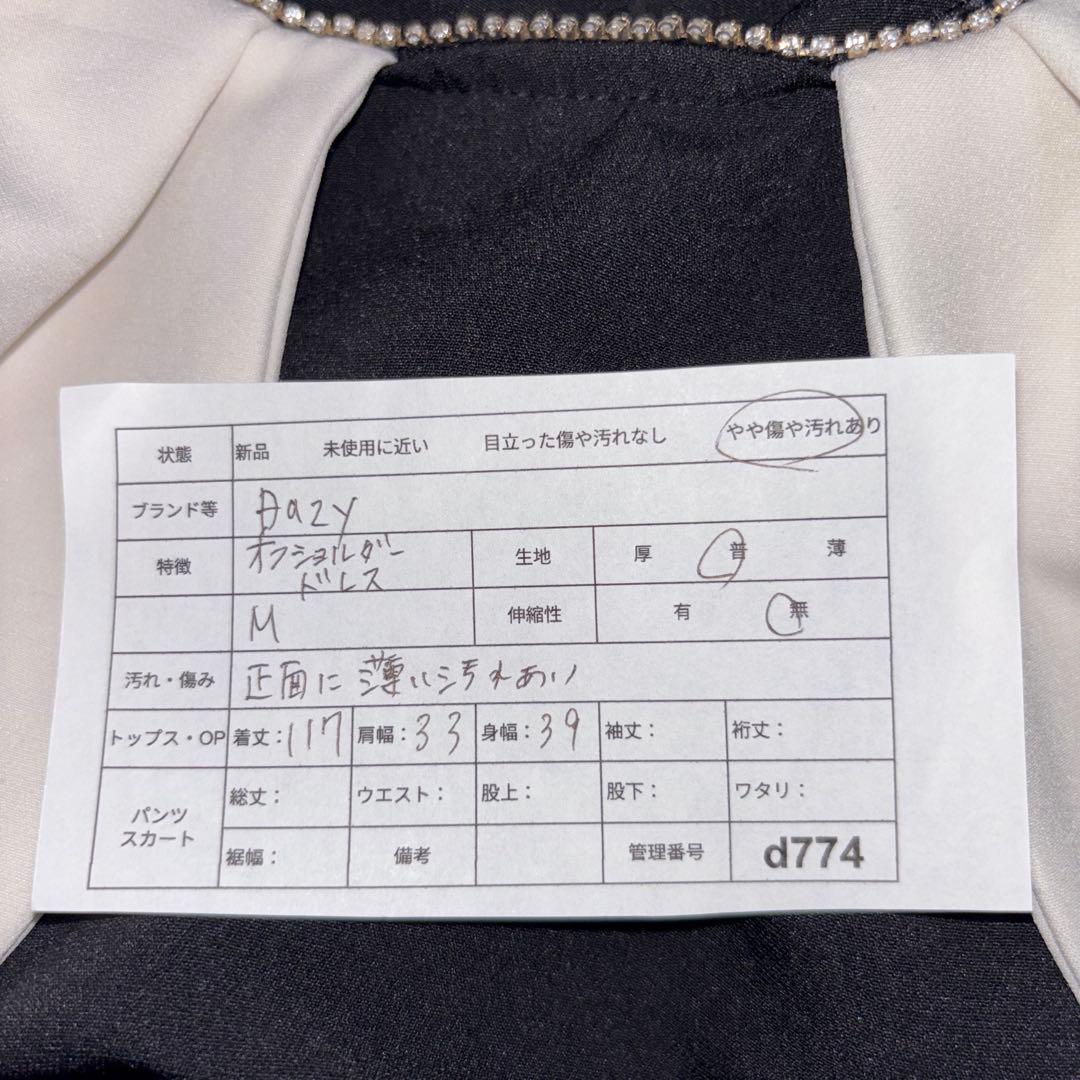 状態 新品 未使用に近い 目立った傷や汚れなし やや傷や汚れあり
ブランド等 Dazy
特徴 オフショルダー 生地 厚 普 薄
ドレス
M 伸縮性 有 無
汚れ・傷み 正面に薄い汚れあり
トップス・OP 着丈：117 肩幅：33 身幅：39 袖丈： 裄丈：
パンツ 総丈： ウエスト： 股上： 股下： ワタリ：
スカート
裾幅： 備考 管理番号 d774